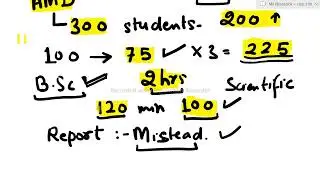 AMD
300 students- 200 ↑
100 → 75 ✓ × 3 = 225
B.Sc 2hrs Scientific
120 min 100 ✓
Report :- Mistead. ✓